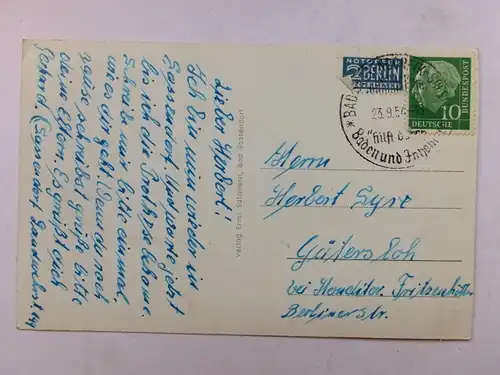 Lieber Herbert!
Ich bin nun wieder in
Sassendorf. Und warte jetzt
bis ich die Prothese bekomme.
Schreibe mir bitte einmal
wie es dir geht. Wenn du nach
hause schreibst grüße bitte
deine Eltern. Es grüßt dich
Gerhard. (Sassendorf,
Verlag Ernst Salzmann, Bad Sassendorf
NOTOPFER
2 BERLIN
STEUERMARKE
DEUTSCHE
BUNDESPOST
10
BAD
23.9.54
hilft
Baden und
Herrn
Herbert Syre
Gütersloh
bei Konditor Fritzenkötter
Berlinerstr.